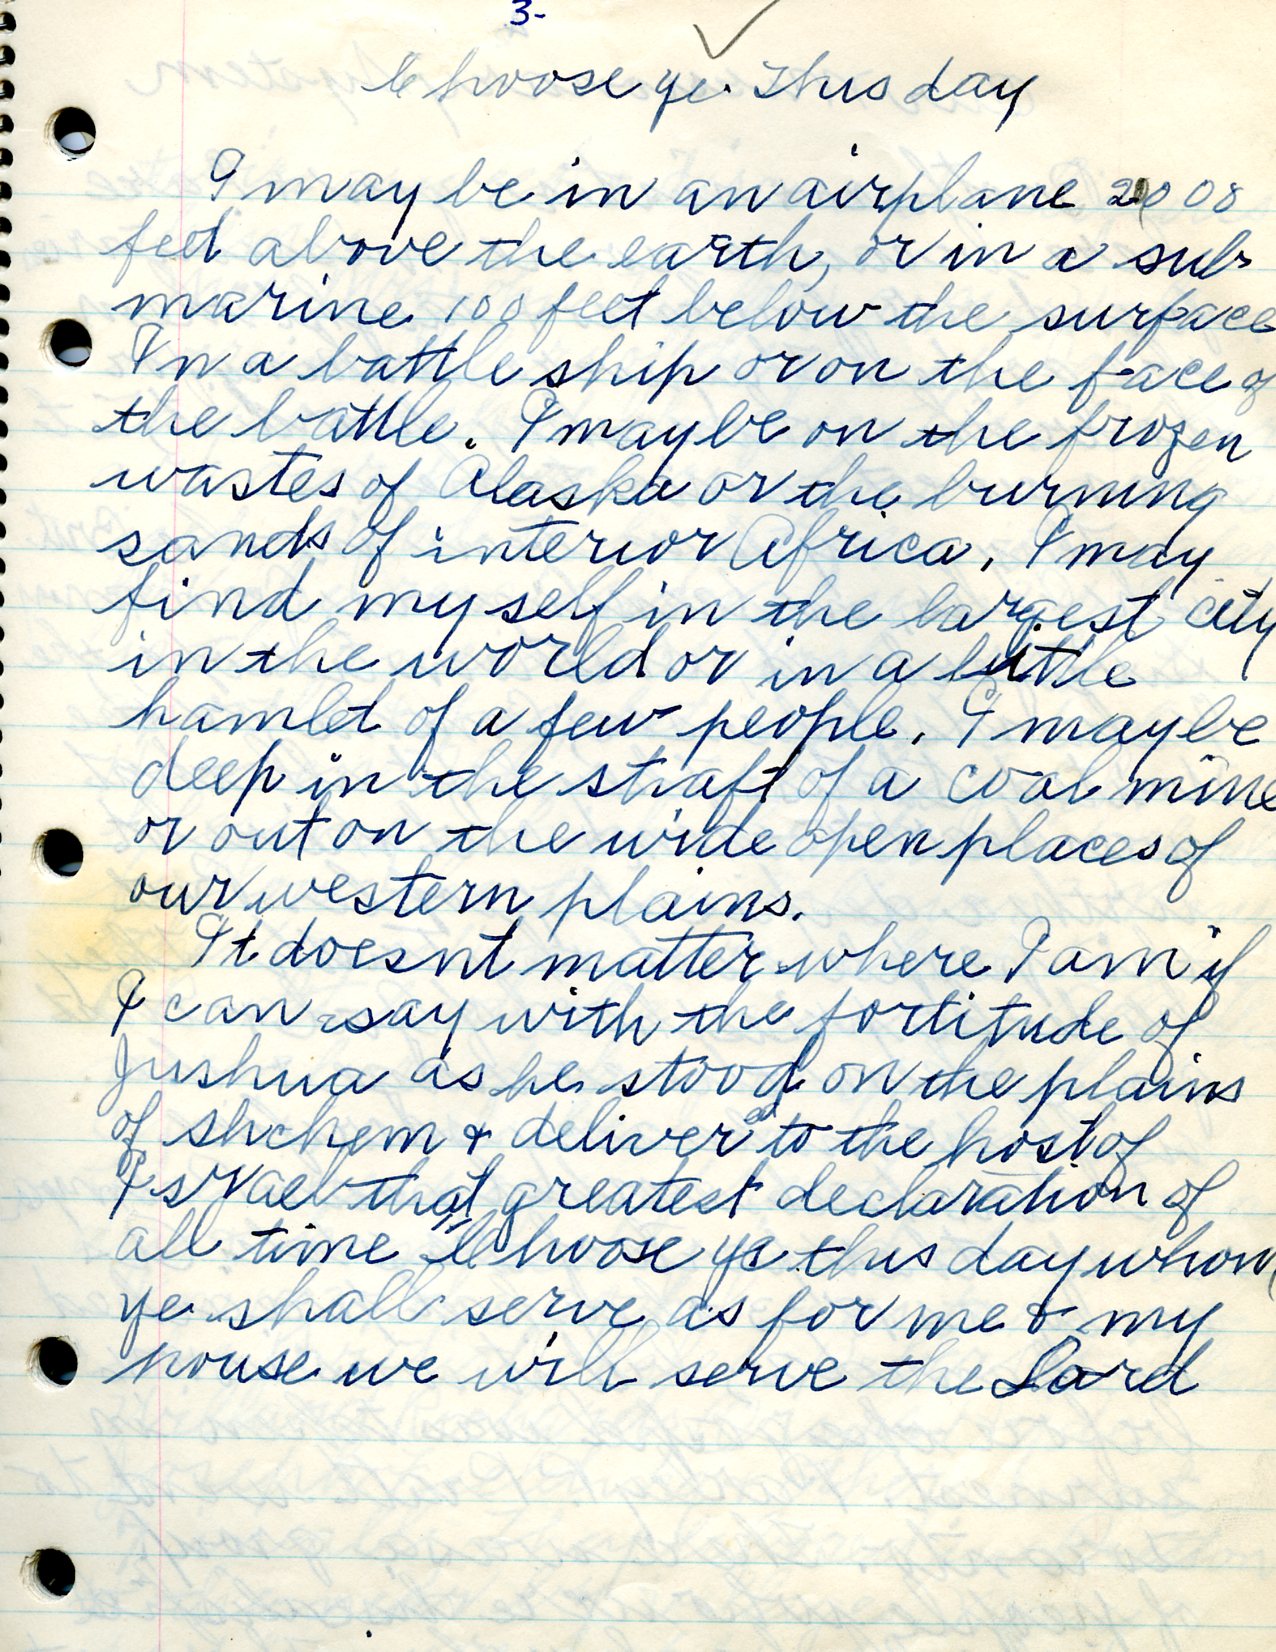 3-
Choose ye This day
I may be in an airplane 2000
feet above the earth, or in a sub
marine 100 feet below the surface
In a battle ship or on the face of
the battle. I maybe on the frozen
wastes of Alaska or the burning
sands of interior Africa. I may
find myself in the largest city
in the world or in a little
hamlet of a few people. I maybe
deep in the shaft of a coal mine
or out on the wide open places of
our western plains.
It doesnt matter where I am if
I can say with the fortitude of
Jushua as he stood on the plains
of Shchem & delivered to the host of
Israel that greatest declaration of
all time "Choose ye this day whom
ye shall serve as for me & my
house we will serve the Lord